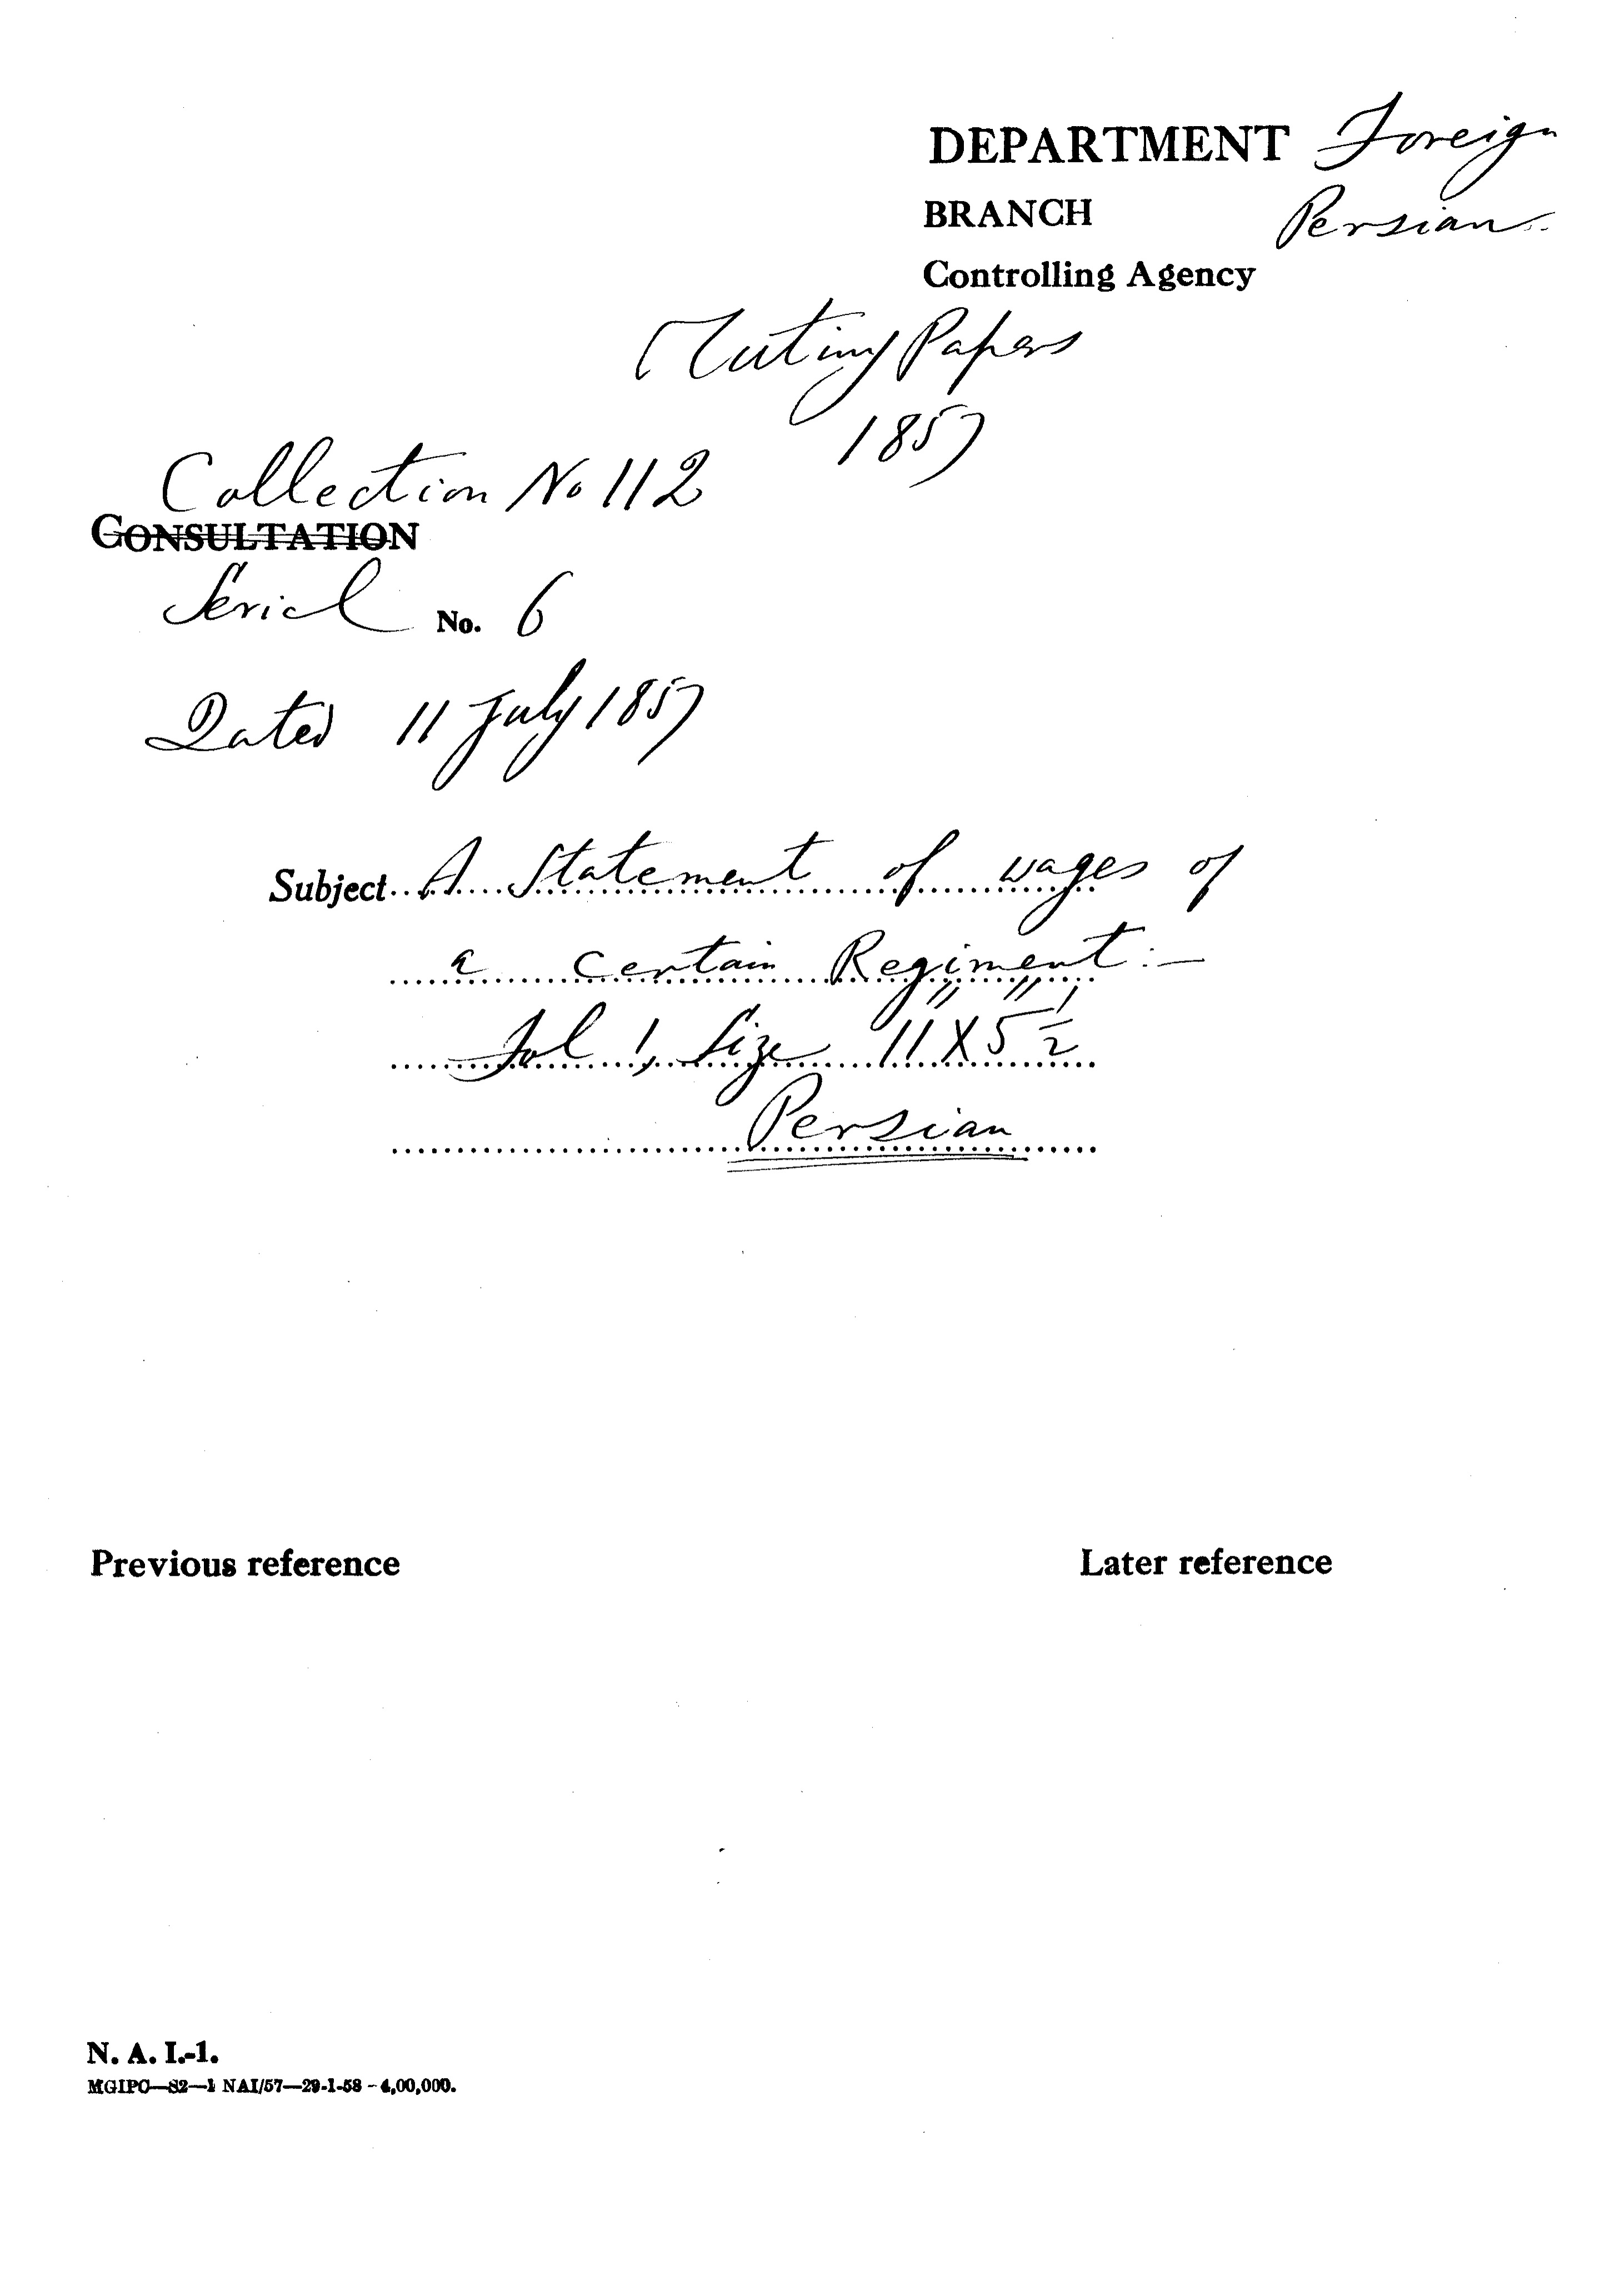 DEPARTMENT Foreign
BRANCH Persian
Controlling Agency
Mutiny Papers
1857
Collection No 112
CONSULTATION
Serial No. 6
Dated 11 July 1857
Subject A Statement of wages of
a certain Regiment:—
Fol 1, Size 11" X 5½"
Persian
Previous reference Later reference
N. A. I.-1.
MGIPC—S2—1 NAI/57—29-1-58—4,00,000.